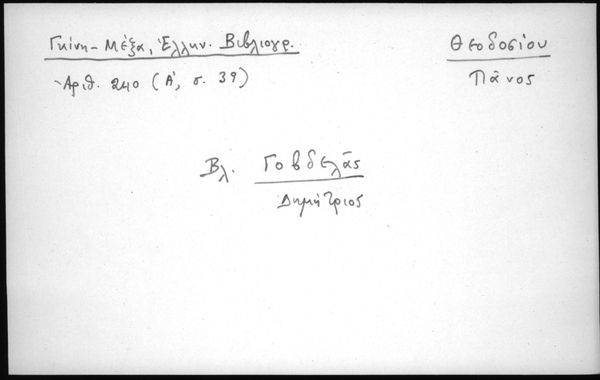 Γκίνη-Μέξα, Ἑλλην. Βιβλιογρ.
Ἀριθ. 240 (Α', σ. 39)
Θεοδοσίου
Πᾶνος
Βλ. Γοβδελᾶς
Δημήτριος